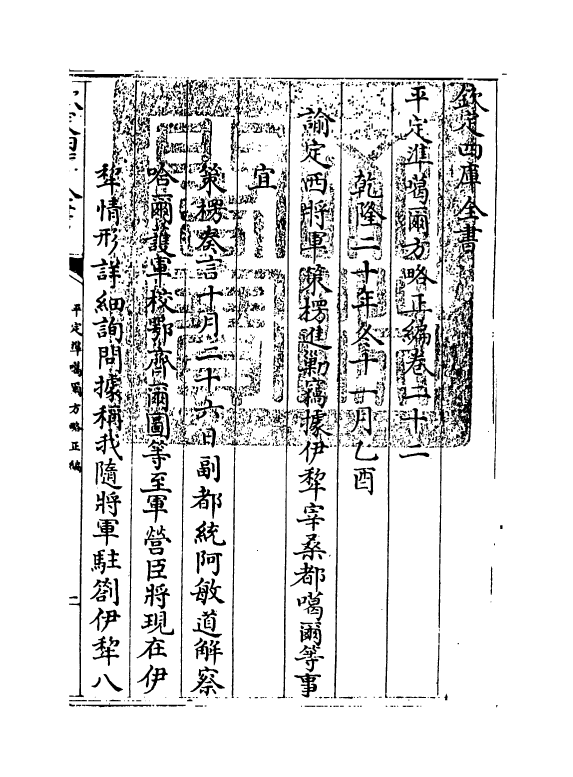 欽定四庫全書
平定準噶爾方略正編卷二十二
乾隆二十年冬十一月乙酉
諭定西將軍策楞進勦竊據伊犂宰桑都噶爾等事
宜
策楞奏言十月二十六日副都統阿敏道解察
哈爾護軍校鄂齊爾圖等至軍營臣將現在伊
犂情形詳細詢問據稱我隨將軍駐劄伊犂八
平定準噶爾方略正編